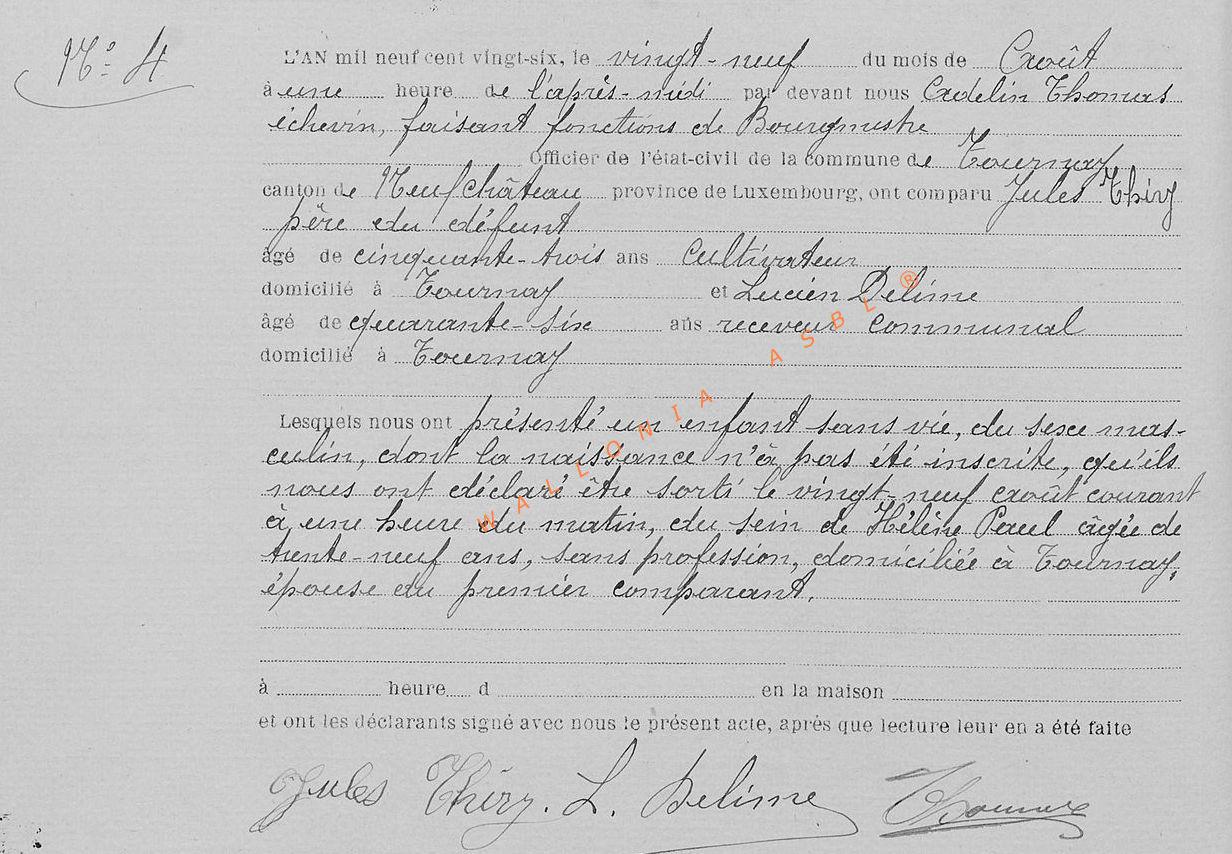 N° 4
L'AN mil neuf cent vingt-six, le vingt-neuf du mois de Août
à une heure de l'après-midi par devant nous Adelin Thomas
échevin, faisant fonctions de Bourgmestre
Officier de l'état-civil de la commune de Tournay
canton de Neufchâteau province de Luxembourg, ont comparu Jules Thiry
père du défunt
âgé de cinquante-trois ans cultivateur
domicilié à Tournay et Lucien Delime
âgé de quarante-six ans receveur communal
domicilié à Tournay
Lesquels nous ont présenté un enfant sans vie, du sexe mas-
culin, dont la naissance n'à pas été inscrite, qu'ils
nous ont déclaré être sorti le vingt-neuf août courant
à une heure du matin, du sein de Hélène Paul âgée de
trente-neuf ans, sans profession, domiciliée à Tournay,
épouse du premier comparant.
à heure d en la maison
et ont les déclarants signé avec nous le présent acte, après que lecture leur en a été faite
Jules Thiry. L. Delime Thomas
WALLONIA ASBL ®